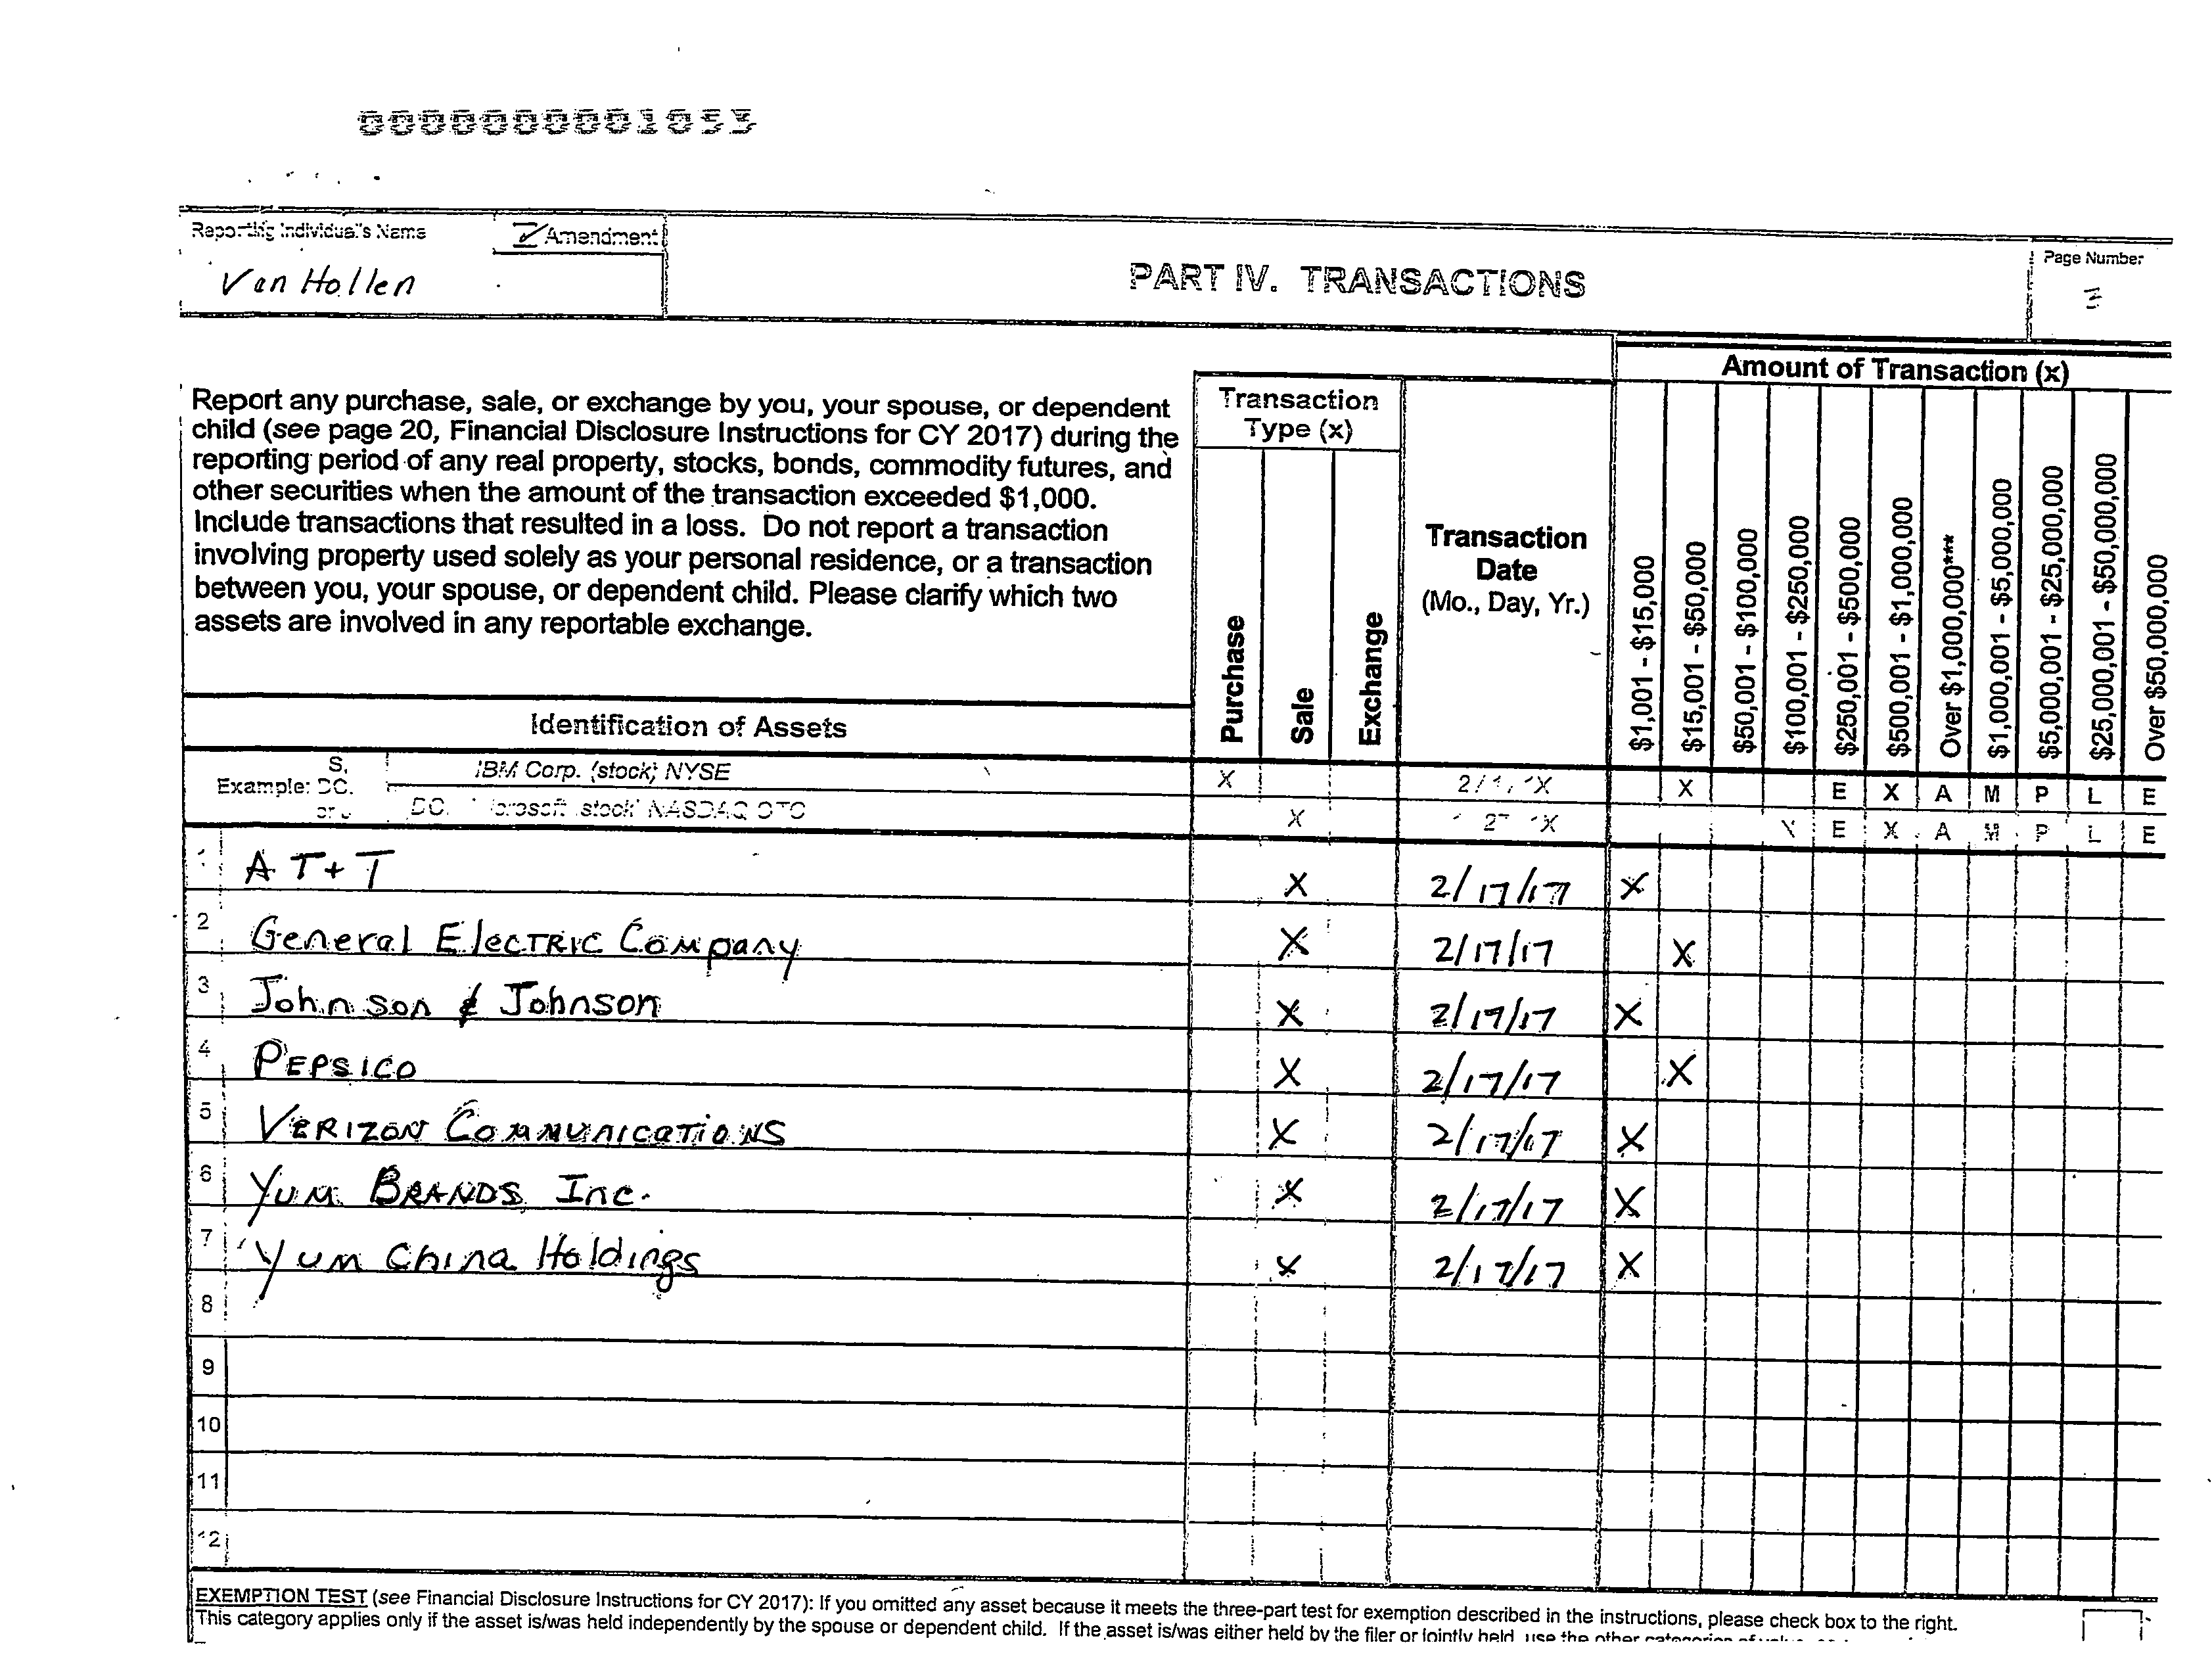 0000000001053
Reporting Individual's Name
Amendment
Van Hollen
PART IV. TRANSACTIONS
Page Number
Amount of Transaction (x)
Report any purchase, sale, or exchange by you, your spouse, or dependent
child (see page 20, Financial Disclosure Instructions for CY 2017) during the
reporting period of any real property, stocks, bonds, commodity futures, and
other securities when the amount of the transaction exceeded $1,000.
Include transactions that resulted in a loss. Do not report a transaction
involving property used solely as your personal residence, or a transaction
between you, your spouse, or dependent child. Please clarify which two
assets are involved in any reportable exchange.
Transaction
Type (x)
Purchase
Sale
Exchange
Transaction
Date
(Mo., Day, Yr.)
$1,001 - $15,000
$15,001 - $50,000
$50,001 - $100,000
$100,001 - $250,000
$250,001 - $500,000
$500,001 - $1,000,000
Over $1,000,000***
$1,000,001 - $5,000,000
$5,000,001 - $25,000,000
$25,000,001 - $50,000,000
Over $50,000,000
Identification of Assets
Example: S, DC, or J
IBM Corp. (stock) NYSE X X E X A M P L E
DC, stock NASDAQ OTC X E X A M P L E
1 AT+T X 2/17/17 X
2 General Electric Company X 2/17/17 X
3 Johnson & Johnson X 2/17/17 X
4 PEPSICO X 2/17/17 X
5 VERIZON COMMUNICATIONS X 2/17/17 X
6 YUM BRANDS Inc. X 2/17/17 X
7 Yum China Holdings X 2/17/17 X
8
9
10
11
12
EXEMPTION TEST (see Financial Disclosure Instructions for CY 2017): If you omitted any asset because it meets the three-part test for exemption described in the instructions, please check box to the right.
This category applies only if the asset is/was held independently by the spouse or dependent child. If the asset is/was either held by the filer or jointly held, use the other categories of